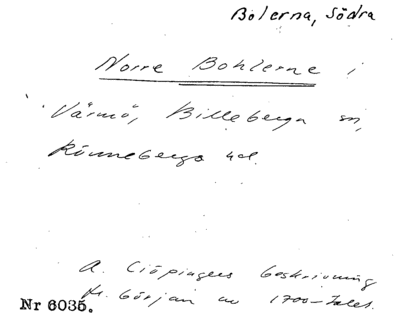 Bölerna, Södra
Norre Bohlerne i
Värmö, Billeberga sn,
Rönnebergs hd.
A. Ciöpingers beskrivning
fr. början av 1700-talet.
Nr 6035.